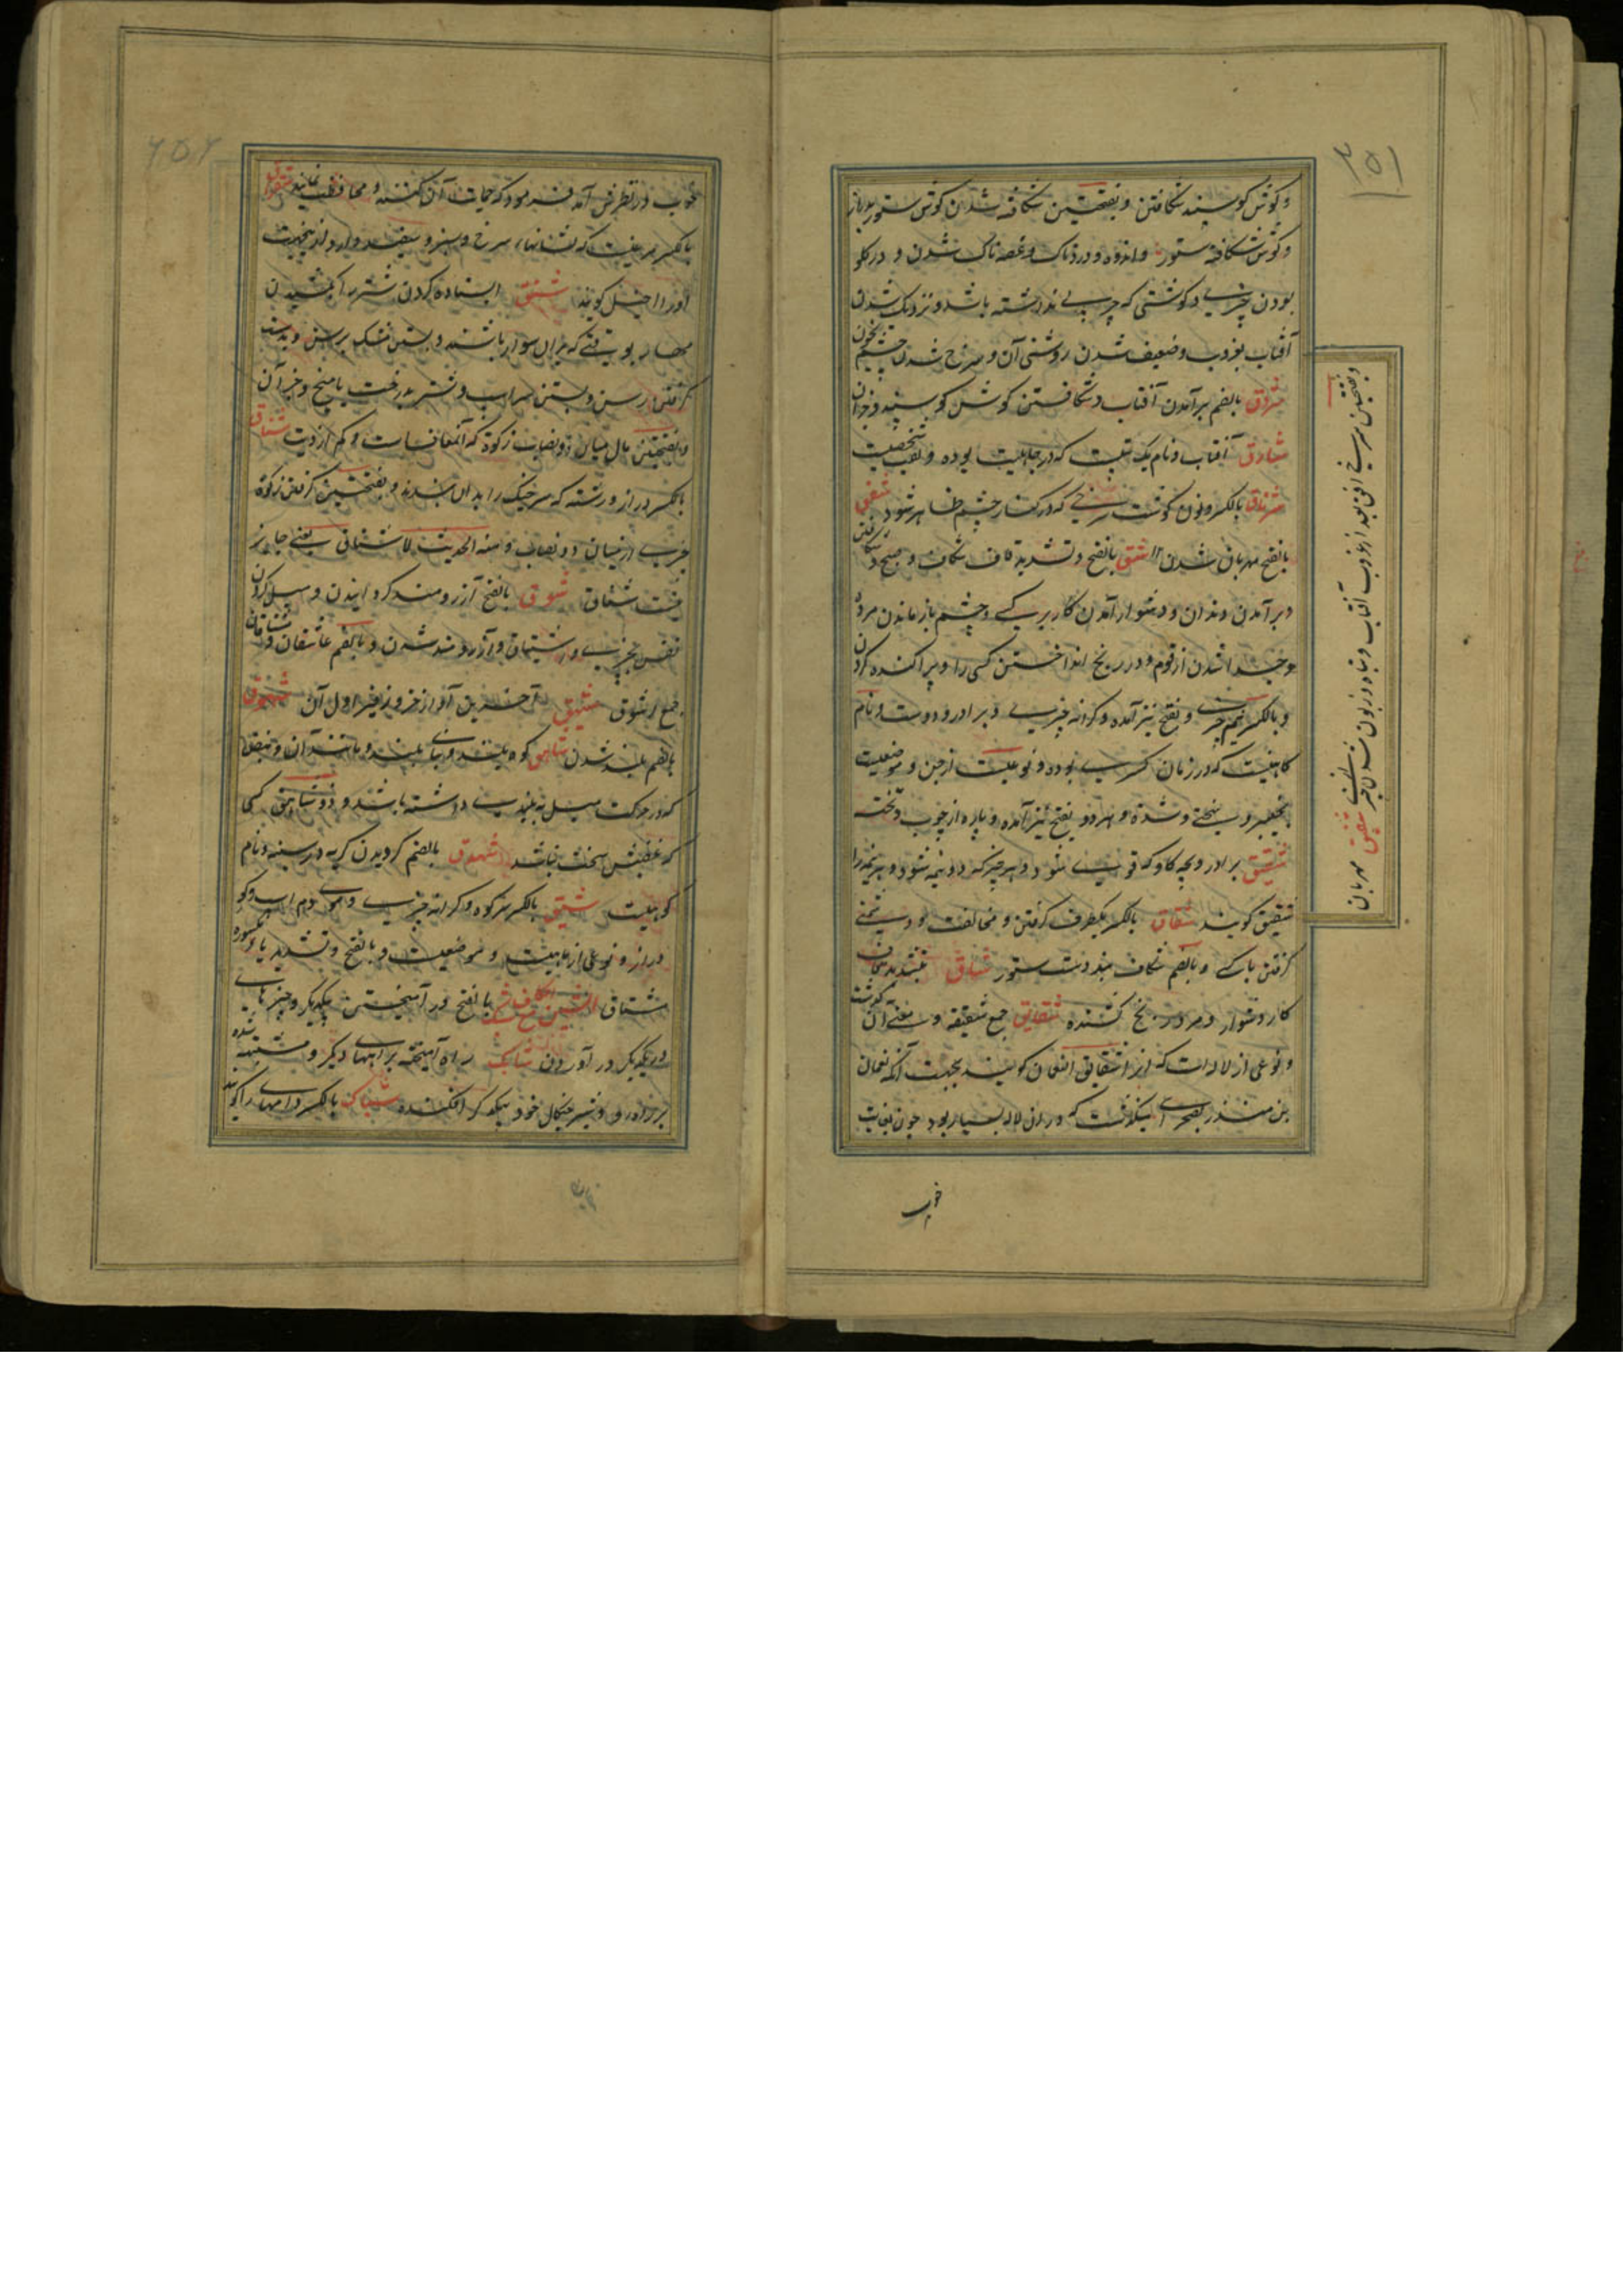 ۲۵۱
و گوش گوسپند شکافتن و بفتحتین شکافته شدن گوش ستور بدراز
و گوش شکافته ستور و اندوه و دردناک و غصه ناک شدن و در گلو
بودن چیزی و گوشتی که چربی نداشته باشد و نزدیک شدن
آفتاب بغروب و ضعیف شدن روشنی آن و سرخ شدن چشم بخون
شروق بالضم برآمدن آفتاب و شکافتن گوش گوسپند و جز آن
شارق آفتاب و نام یک بت که در جاهلیت بوده و لقب شخصیت
شرناق بالکسر و نون گوشت سرخی که در کنار چشم ظاهر شود شفق
بالفتح مهربان شدن شق بالفتح و تشدید قاف شکاف و صبح و شکافتن
و برآمدن دندان و دشوار آمدن کار بر کسی و چشم باز ماندن مرده
و جدا شدن از قوم و در رنج انداختن کسی را و پراکنده کردن
و بالکسر نیم چیزی و بفتح نیز آمده و کرانه چیزی و برادر و دوست و نام
کاهنیست که در زمان کسری بوده و نوعیست از جن و موضعیست
بخیبر و سختی و شدة و هر دو بفتح نیز آمده و پاره از چوب و تخته
شقیق برادر و بچه گاو که قوی شود و هر چیز که دو نیمه شود و هر نیمه را
شقیق گویند شقاق بالکسر یکطرف گرفتن و مخالفت و دشمنی
گرفتن با کسی و بالضم شکاف بند دست ستور شاق بتشدید قاف
کار دشوار و در رنج کشنده شقایق جمع شقیقه و معنی آن گذشت
و نوعی از لاله است که انرا شقایق النعمان گویند بجهت آنکه نعمان
بن منذر بصحرای میگذشت که در ان لاله بسیار بود چون بغایت
خوب
و بفتحتین سرخی افق بعد از غروب آفتاب و تباه و زبون شفیق مهربان
۲۵۲
خوب در نظرش آمد فرمود که حمایت آن کنند و محافظت نمایند شقراق
بالکسر مرغیست که نشانهای سرخ و سبز و سفید دارد ازینجهت
اورا اخیل گویند شنق ایستاده کردن شتر بکشیدن
مهار بوقتی که بران سوار باشند و بستن مشک برسن و بدست
گرفتن رسن و بستن سر اسب و شتر بدرخت یا میخ و جز آن
و بفتحتین مال میان دو نصاب زکوة که آن معاف است و کم از دیت شناق
بالکسر دراز و رشته که سر خیک را بدان بندند و بفتحتین گرفتن زکوة
چیزی از میان دو نصاب و منه الحدیث لا شناق یعنی جایز
نیست شناق شوق بالفتح آرزومند گردانیدن و میل کردن
نفس بچیزی و اشتیاق و آرزومند شدن و بالضم عاشقان و مشتاقان
جمع اشوق شهیق آخرین آواز خر و زفیر اول آن شهوق
بالضم بلند شدن شاهق کوه بلند و بنای بلند و مانند آن و نبض
که در حرکت میل به بلندی داشته باشد و ذو شاهق کسی
که غضبش سخت باشد شهوق بالضم گردیدن گریه در سینه و نام
کوهیست شیق بالکسر سر کوه و کرانه چیزی و موی دم اسب و کوه
دراز و نوعی از ماهیست و موضعیست و بالفتح و تشدید یا مکسوره
مشتاق الشین مع الکاف شبک بالفتح در آمیختن بیکدیگر و چیزهای
در یکدیگر در آوردن شابک راه آمیخته براههای دیگر و مشتبه شده
بر راه رو و شیر چنگال خود بیکدیگر افکننده شباک بالکسر دامهای را گویند